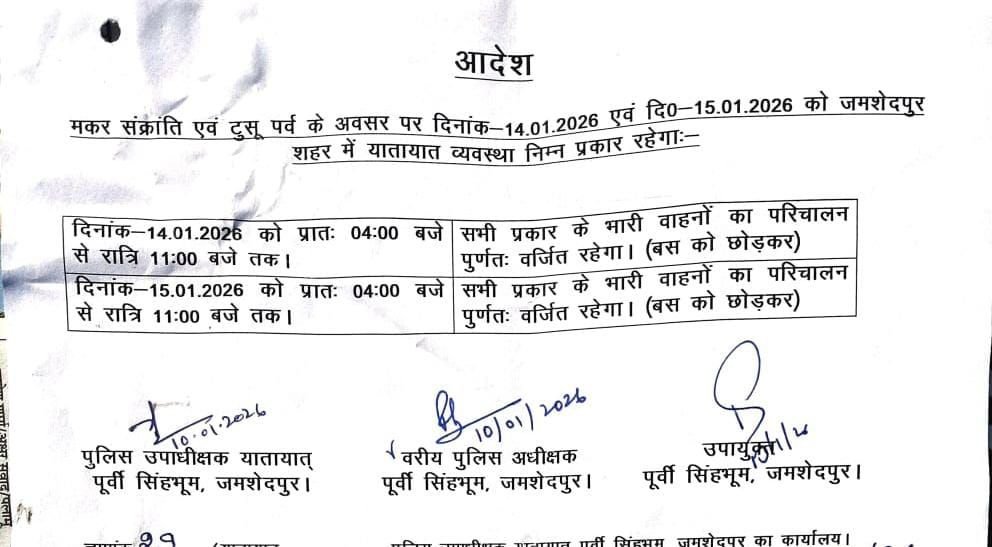 आदेश
मकर संक्रांति एवं टुसू पर्व के अवसर पर दिनांक–14.01.2026 एवं दि0–15.01.2026 को जमशेदपुर
शहर में यातायात व्यवस्था निम्न प्रकार रहेगाः–
दिनांक–14.01.2026 को प्रातः 04:00 बजे
से रात्रि 11:00 बजे तक।
सभी प्रकार के भारी वाहनों का परिचालन
पुर्णतः वर्जित रहेगा। (बस को छोड़कर)
दिनांक–15.01.2026 को प्रातः 04:00 बजे
से रात्रि 11:00 बजे तक।
सभी प्रकार के भारी वाहनों का परिचालन
पुर्णतः वर्जित रहेगा। (बस को छोड़कर)
10.01.2026
पुलिस उपाधीक्षक यातायात्
पूर्वी सिंहभूम, जमशेदपुर।
10/01/2026
वरीय पुलिस अधीक्षक
पूर्वी सिंहभूम, जमशेदपुर।
उपायुक्त
पूर्वी सिंहभूम, जमशेदपुर।
पुलिस उपाधीक्षक यातायात पूर्वी सिंहभूम, जमशेदपुर का कार्यालय।